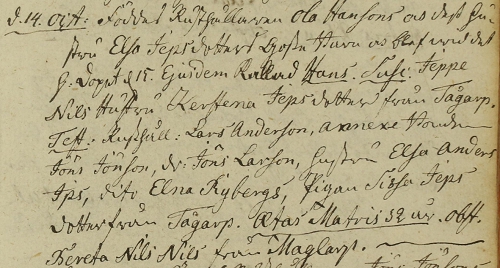 d. 14. oct: Föddes Rusthållaren Ola Hansons och dess Hu-
stru Elsa Jeps dotters Gosse Barn och blef vid det
H. Dopet d 15. Ejusdem Kallad Hans. Susc: Jeppe
Nils Hustru Kerstena Jeps dotter från Tågarp.
Test: Rusthåll: Lars Anderson,
Jöns Jönson, dr: Jöns Larson, hustru Elsa Anders
Jps, dito Elna Rybergs, pigan Sissa Jeps
dotter från Tågarp. Ætas Matris 32 år. obst.
Bereta Nils Nils från Maglarp.